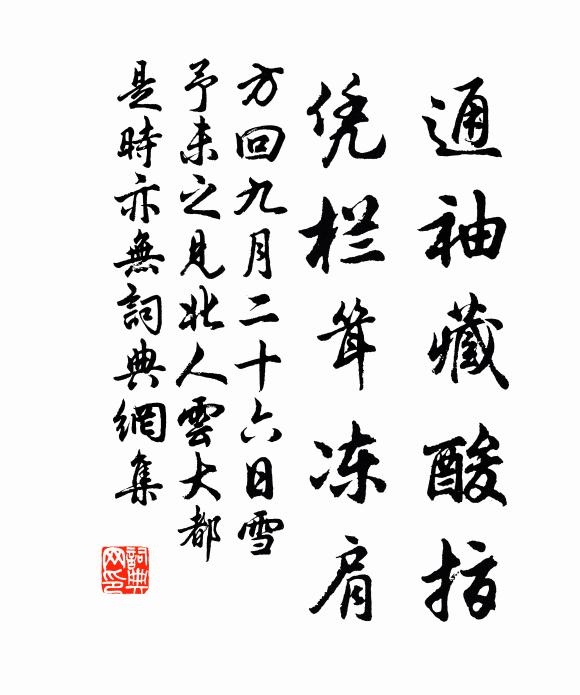 通袖藏酸指
凭栏耸冻肩
方回九月二十六日雪
予未之见北人雲大都
是時亦無詞典網集
詞典网印